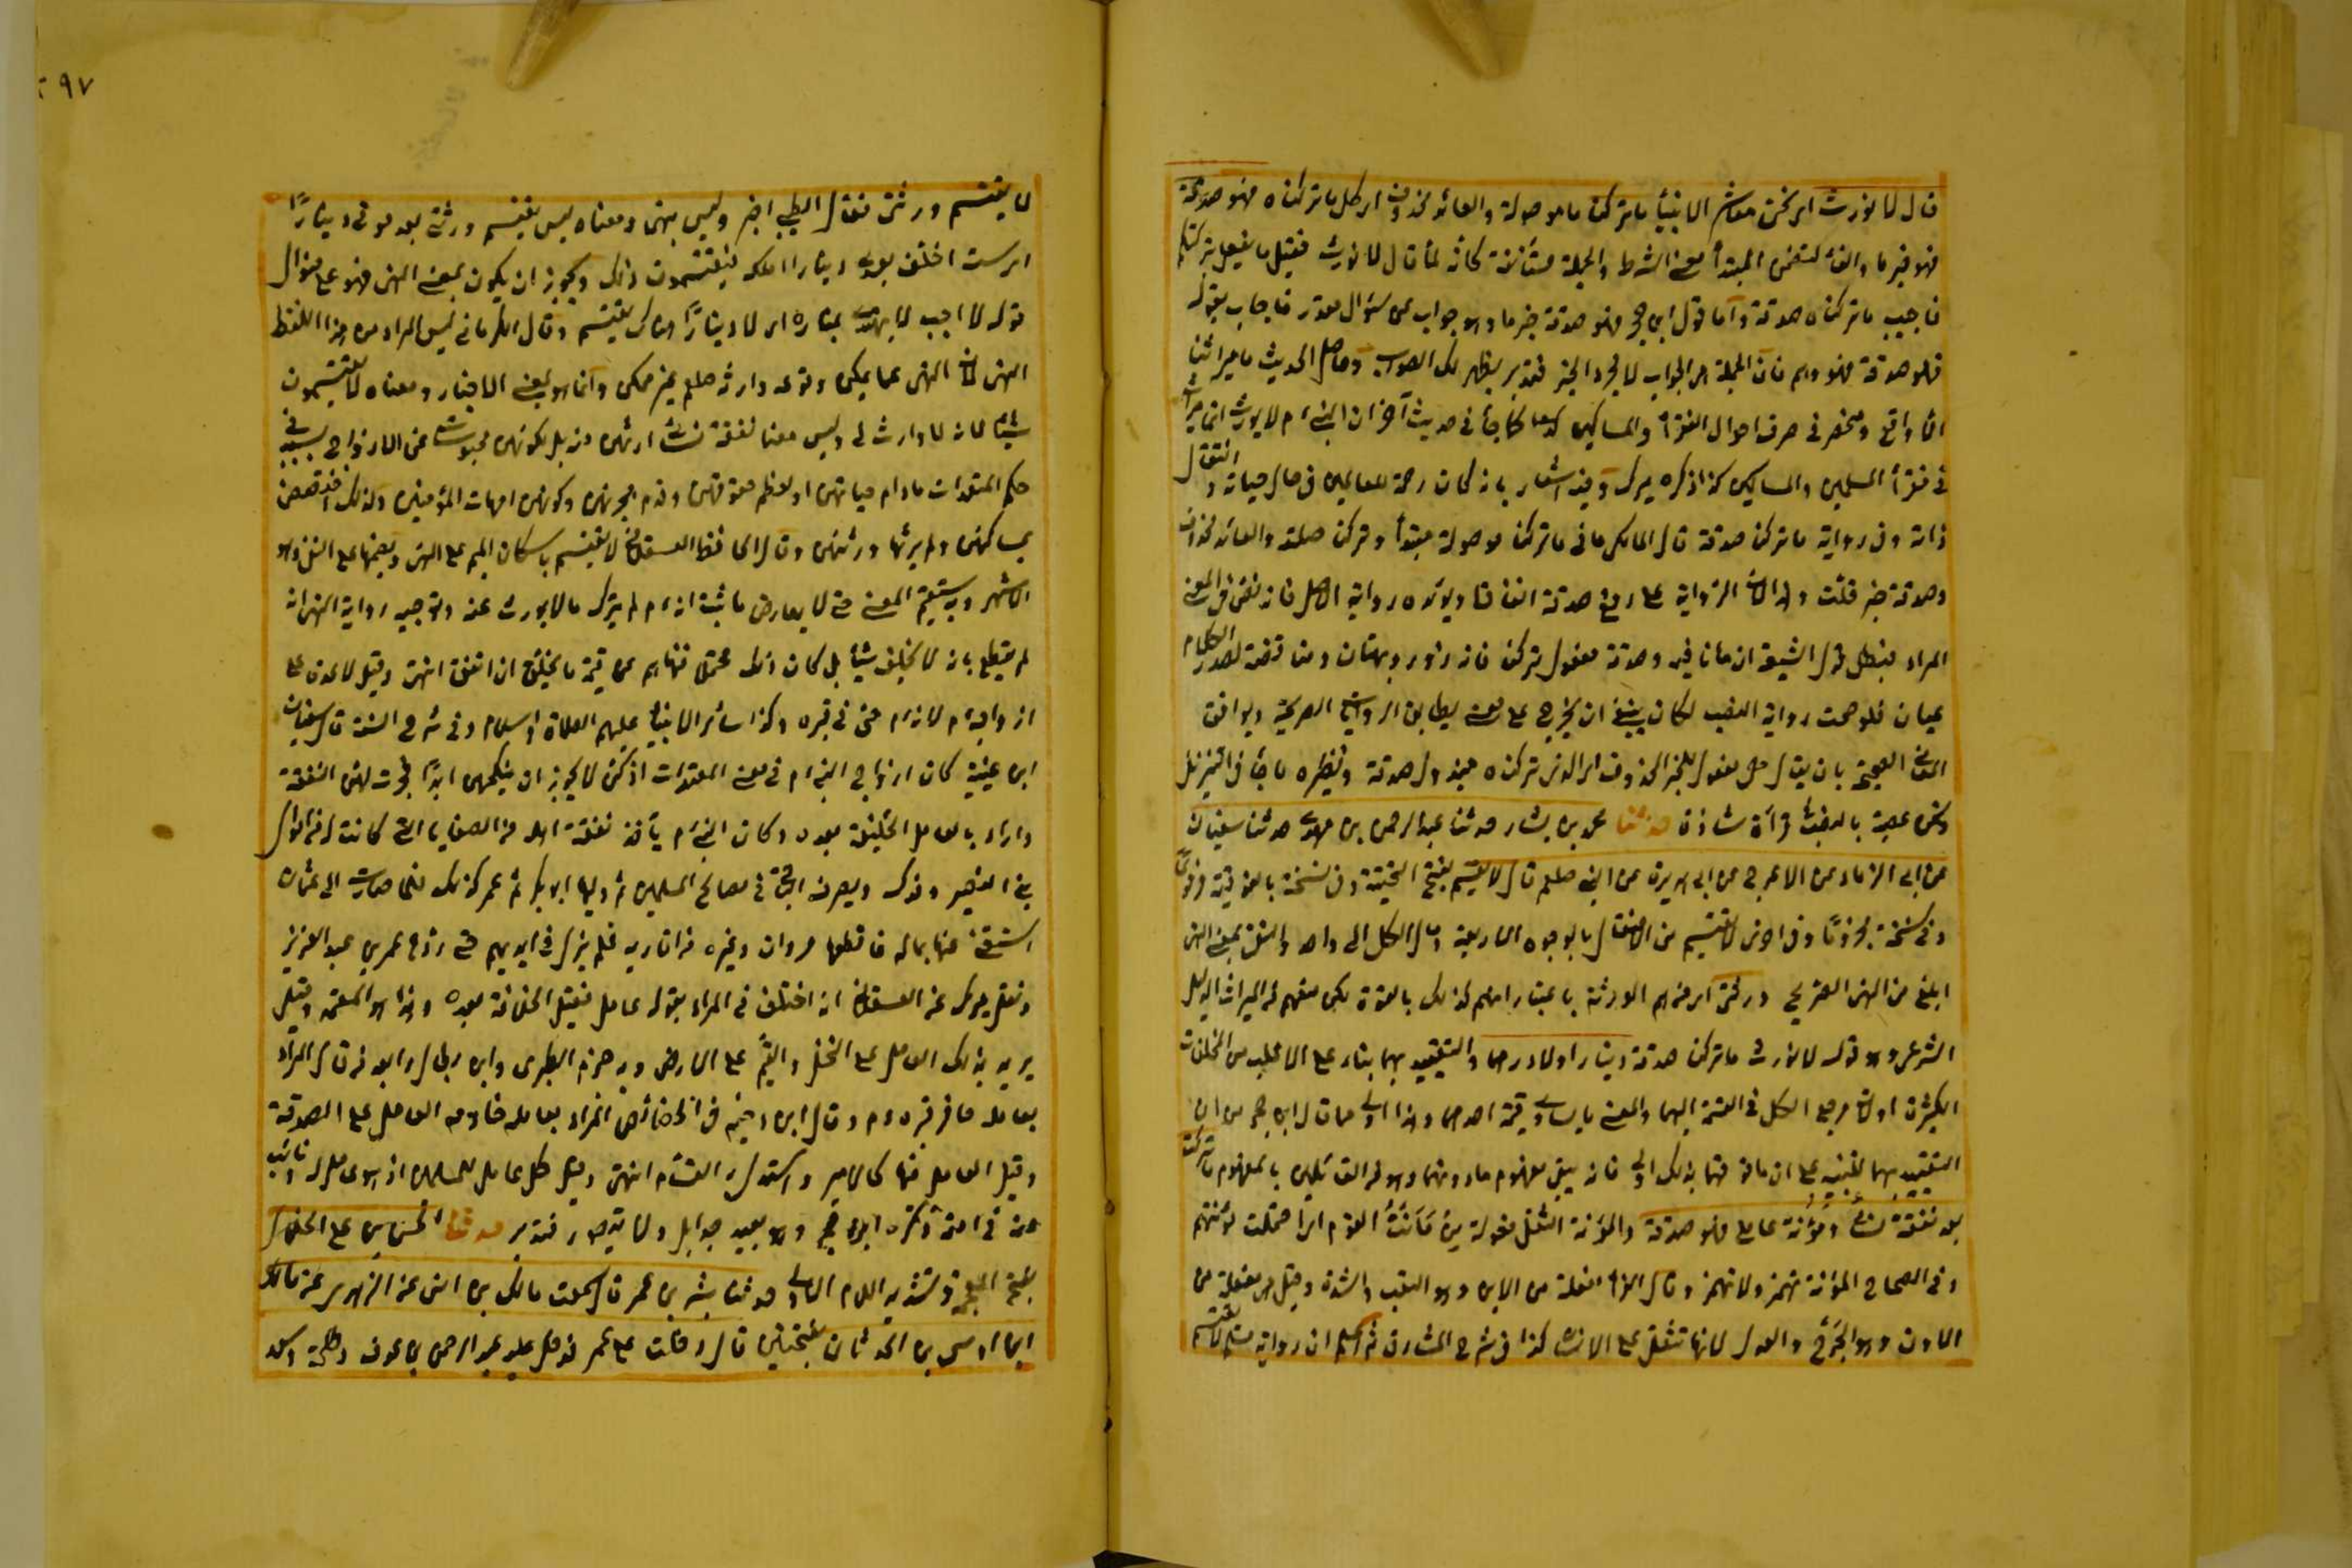 قال لا نورث اى نحن معاشر الانبياء ما تركنا ما موصولة والعائد محذوف اى كل ما تركناه فهو صدقة
فهو خبر ما والفاء لتضمن المبتدأ معنى الشرط والجملة مستأنفة كانه لما قال لا نورث فقيل ما يفعل بتركتكم
فاجيب ما تركناه صدقة واما قول ابن حجر فهو صدقة خبر ما وهو جواب عن سؤال مقدر فاجاب بقوله
فهو صدقة فهو وهم فان الجملة هى الجواب لا مجرد الخبر فتدبر يظهر لك الصواب وحاصل الحديث ما ميراثنا
الا واقع ومنحصر فى صرف احوال الفقراء والمساكين كما جاء فى حديث آخر ان النبى ءم لا يورث انما ميراثه
فى فقراء المسلمين والمساكين كذا ذكره ميرك وفيه اشعار بانه كان رحمة للعالمين فى حال حياته وانتقال
ذاته وفى رواية ما تركنا صدقة قال المالكى ما فى ما تركنا موصولة مبتدأ وتركنا صلته والعائد محذوف
وصدقة خبر قلت الرواية على رفع صدقة اتفاقا ويؤيده رواية الاصل فانه نص فى المعنى
المراد فبطل قول الشيعة ان ما نافية وصدقة مفعول تركنا فانه زور وبهتان ومناقضة لصدر الكلام
عيان فلو صحت رواية النصب لكان ينبغى ان يخرج على معنى يطابق الروايات الصريحة ويوافق
المعانى الصحيحة بان يقال هى مفعول للخبر المحذوف اى الذى تركناه مبذول صدقة ونظيره ما جاء فى التنزيل
ونحن عصبة بالنصب قرآة شاذة حدثنا محمد بن بشار حدثنا عبد الرحمن بن مهدى حدثنا سفيان
عن ابى الزناد عن الاعرج عن ابى هريرة عن النبى صلعم قال لا يقسم بفتح التحتية وفى نسخة بالفوقية
وفى نسخة مجزوما وفى اخرى لا يقتسم من الافتعال بالوجوه الاربعة ومآل الكل الى واحد والنفى بمعنى النهى
ابلغ من النهى الصريح ورثتى اى من هم الورثة باعتبار انهم كذلك بالقوة لكن منعهم من الميراث الدليل
الشرعى وهو قوله لا نورث ما تركنا صدقة دينارا ولا درهما والتقييد بهما بناء على الاغلب من المخلفات
الكثيرة او لان مرجع الكل فى القسمة اليهما والمعنى ما يساوى قيمة احدهما وهذا اولى مما قال ابن حجر من ان
التقييد بهما للتنبيه على ان ما فوقهما بذلك اولى فانه يبقى مفهوم ما دونهما وهو من القائلين بالمفهوم ما تركت
بعد نفقة نسائى ومؤنة عاملى فهو صدقة والمؤنة الثقل فعولة من مأنت القوم اى احتملت مؤنتهم
وفى الصحاح المؤنة تهمز ولا تهمز وقال الفراء مفعلة من الاين وهو التعب والشدة وقيل هى مفعلة من
الاون وهو الخرج والعدل لانها تثقل على الانسان كذا فى شرح المشارق ثم اعلم ان رواية مسلم لا يقتسم
لا يقتسم ورثتى فقال الطيبى خبر وليس بنهى ومعناه ليس يقتسم ورثتى بعد موتى دينارا
اى لست اخلف بعدى دينارا املكه فيقتسمون ذلك ويجوز ان يكون بمعنى النهى فهو على منوال
قوله لا احب لا يهتدى بمناره اى لا دينارا هناك يقتسم وقال الكرمانى ليس المراد من هذا اللفظ
النهى لان النهى عما يمكن وقوعه وارثه صلعم غير ممكن وانما هو بمعنى الاخبار ومعناه لا يقتسمون
شيئا لانه لا وارث لى وليس معنا نفقة نسائى ارثهن منه بل لكونهن محبوسات عن الازواج بسببه فى
حكم المعتدات مادام حياتهن او لعظم حقوقهن وقدم هجرتهن وكونهن امهات المؤمنين ولذلك اختصصن
بمساكنهن ولم يرثها ورثتهن وقال الحافظ العسقلانى لا يقتسم باسكان الميم على النهى وبضمها على النفى وهو
الاشهر وبه يستقيم المعنى حتى لا يعارض ما ثبت انه ءم لم يترك مالا يورث عنه وتوجيه رواية النهى انه
لم يقطع بانه لا يخلف شيئا بل كان ذلك محتملا فنهاهم عن قسمة ما يخلف ان اتفق انتهى وقيل لا عدة على
ازواجه ءم لانه ءم حى فى قبره وكذا سائر الانبياء عليهم الصلاة والسلام وفى شرح السنة قال سفيان
ابن عيينة كان ازواج النبى ءم فى معنى المعتدات اذ كن لا يجوز ان ينكحن ابدا فجرت لهن النفقة
واراد بالعامل الخليفة بعده وكان النبى ءم يأخذ نفقة اهله من الصفايا التى كانت له من اموال
بنى النضير وفدك ويصرف الباقى فى مصالح المسلمين ثم وليها ابو بكر ثم عمر كذلك فلما صارت الى عثمان
استغنى عنها بماله فاقطعها مروان وغيره من اقاربه فلم يزل فى ايديهم حتى ردها عمر بن عبد العزيز
ونقل ميرك عن العسقلانى انه اختلف فى المراد بقوله عامل فقيل الخليفة بعده وهذا هو المعتمد وقيل
يريد بذلك العامل على النخل والقيم على الارض وبه جزم الطبرى وابن بطال وابعد من قال المراد
بعامله حافر قبره ءم وقال ابن دحية فى الخصائص المراد بعامله خادمه العامل على الصدقة
وقيل العامل فيها كالاجير واستدل انتهى وقيل كل عامل للمسلمين اذ هو عامل له ونائب
عنه فى امته وذكره ابن حجر وهو بعيد جدا بل ولا يتصور فتدبر حدثنا الحسن بن على الخلال
بفتح المعجمة وتشديد اللام الاولى حدثنا بشر بن عمر قال سمعت مالك بن انس عن الزهرى عن مالك
ابن اوس بن الحدثان بفتحتين قال دخلت على عمر فدخل عليه عبد الرحمن بن عوف وطلحة وسعد